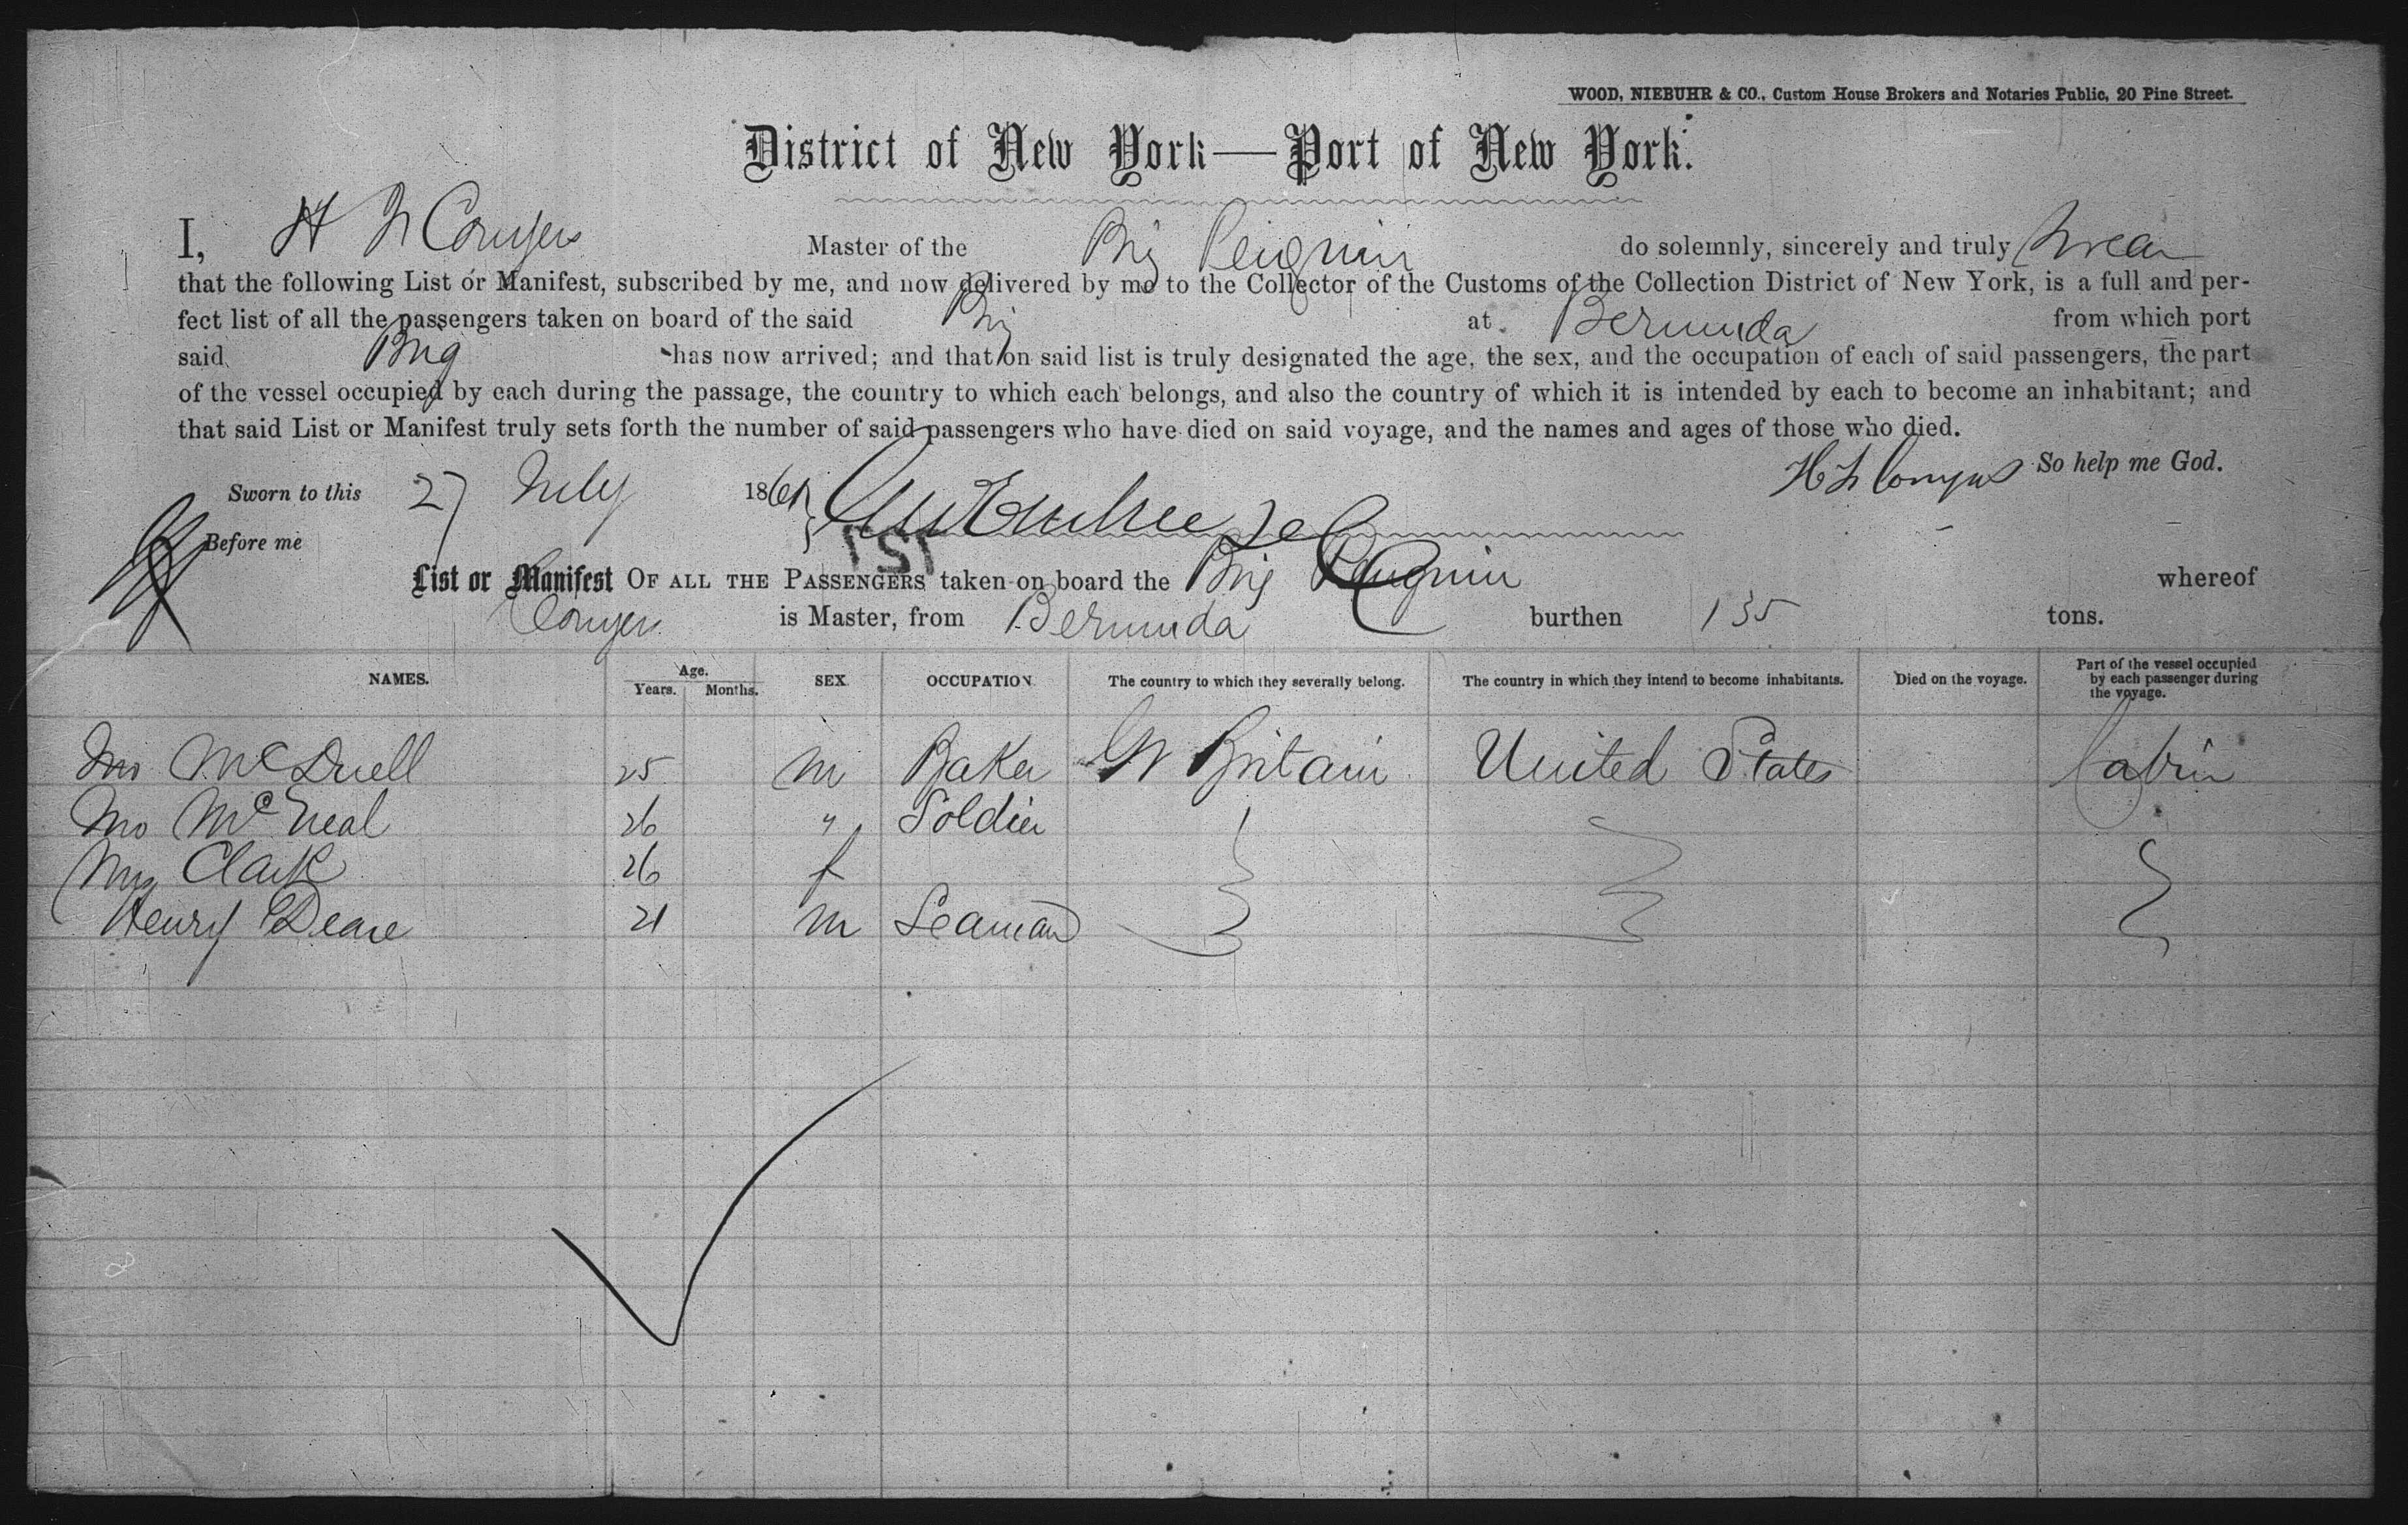 WOOD, NIEBUHR & CO., Custom House Brokers and Notaries Public, 20 Pine Street.
District of New York—Port of New York.
I, H Conyers Master of the Brig Penguin do solemnly, sincerely and truly swear
that the following List or Manifest, subscribed by me, and now delivered by me to the Collector of the Customs of the Collection District of New York, is a full and per-
fect list of all the passengers taken on board of the said Brig at Bermuda from which port
said Brig has now arrived; and that on said list is truly designated the age, the sex, and the occupation of each of said passengers, the part
of the vessel occupied by each during the passage, the country to which each belongs, and also the country of which it is intended by each to become an inhabitant; and
that said List or Manifest truly sets forth the number of said passengers who have died on said voyage, and the names and ages of those who died.
H Conyers So help me God.
Sworn to this 27 July 1861
Before me
List or Manifest OF ALL THE PASSENGERS taken on board the Brig Penguin whereof
Conyers is Master, from Bermuda burthen 135 tons.
NAMES. Age. Years. Months. SEX. OCCUPATION. The country to which they severally belong. The country in which they intend to become inhabitants. Died on the voyage. Part of the vessel occupied by each passenger during the voyage.
McDuell 25 m Baker Gt Britain United States Cabin
McNeal 26 " Soldier
Mrs Clark 26 f
Henry Deane 21 m Seaman